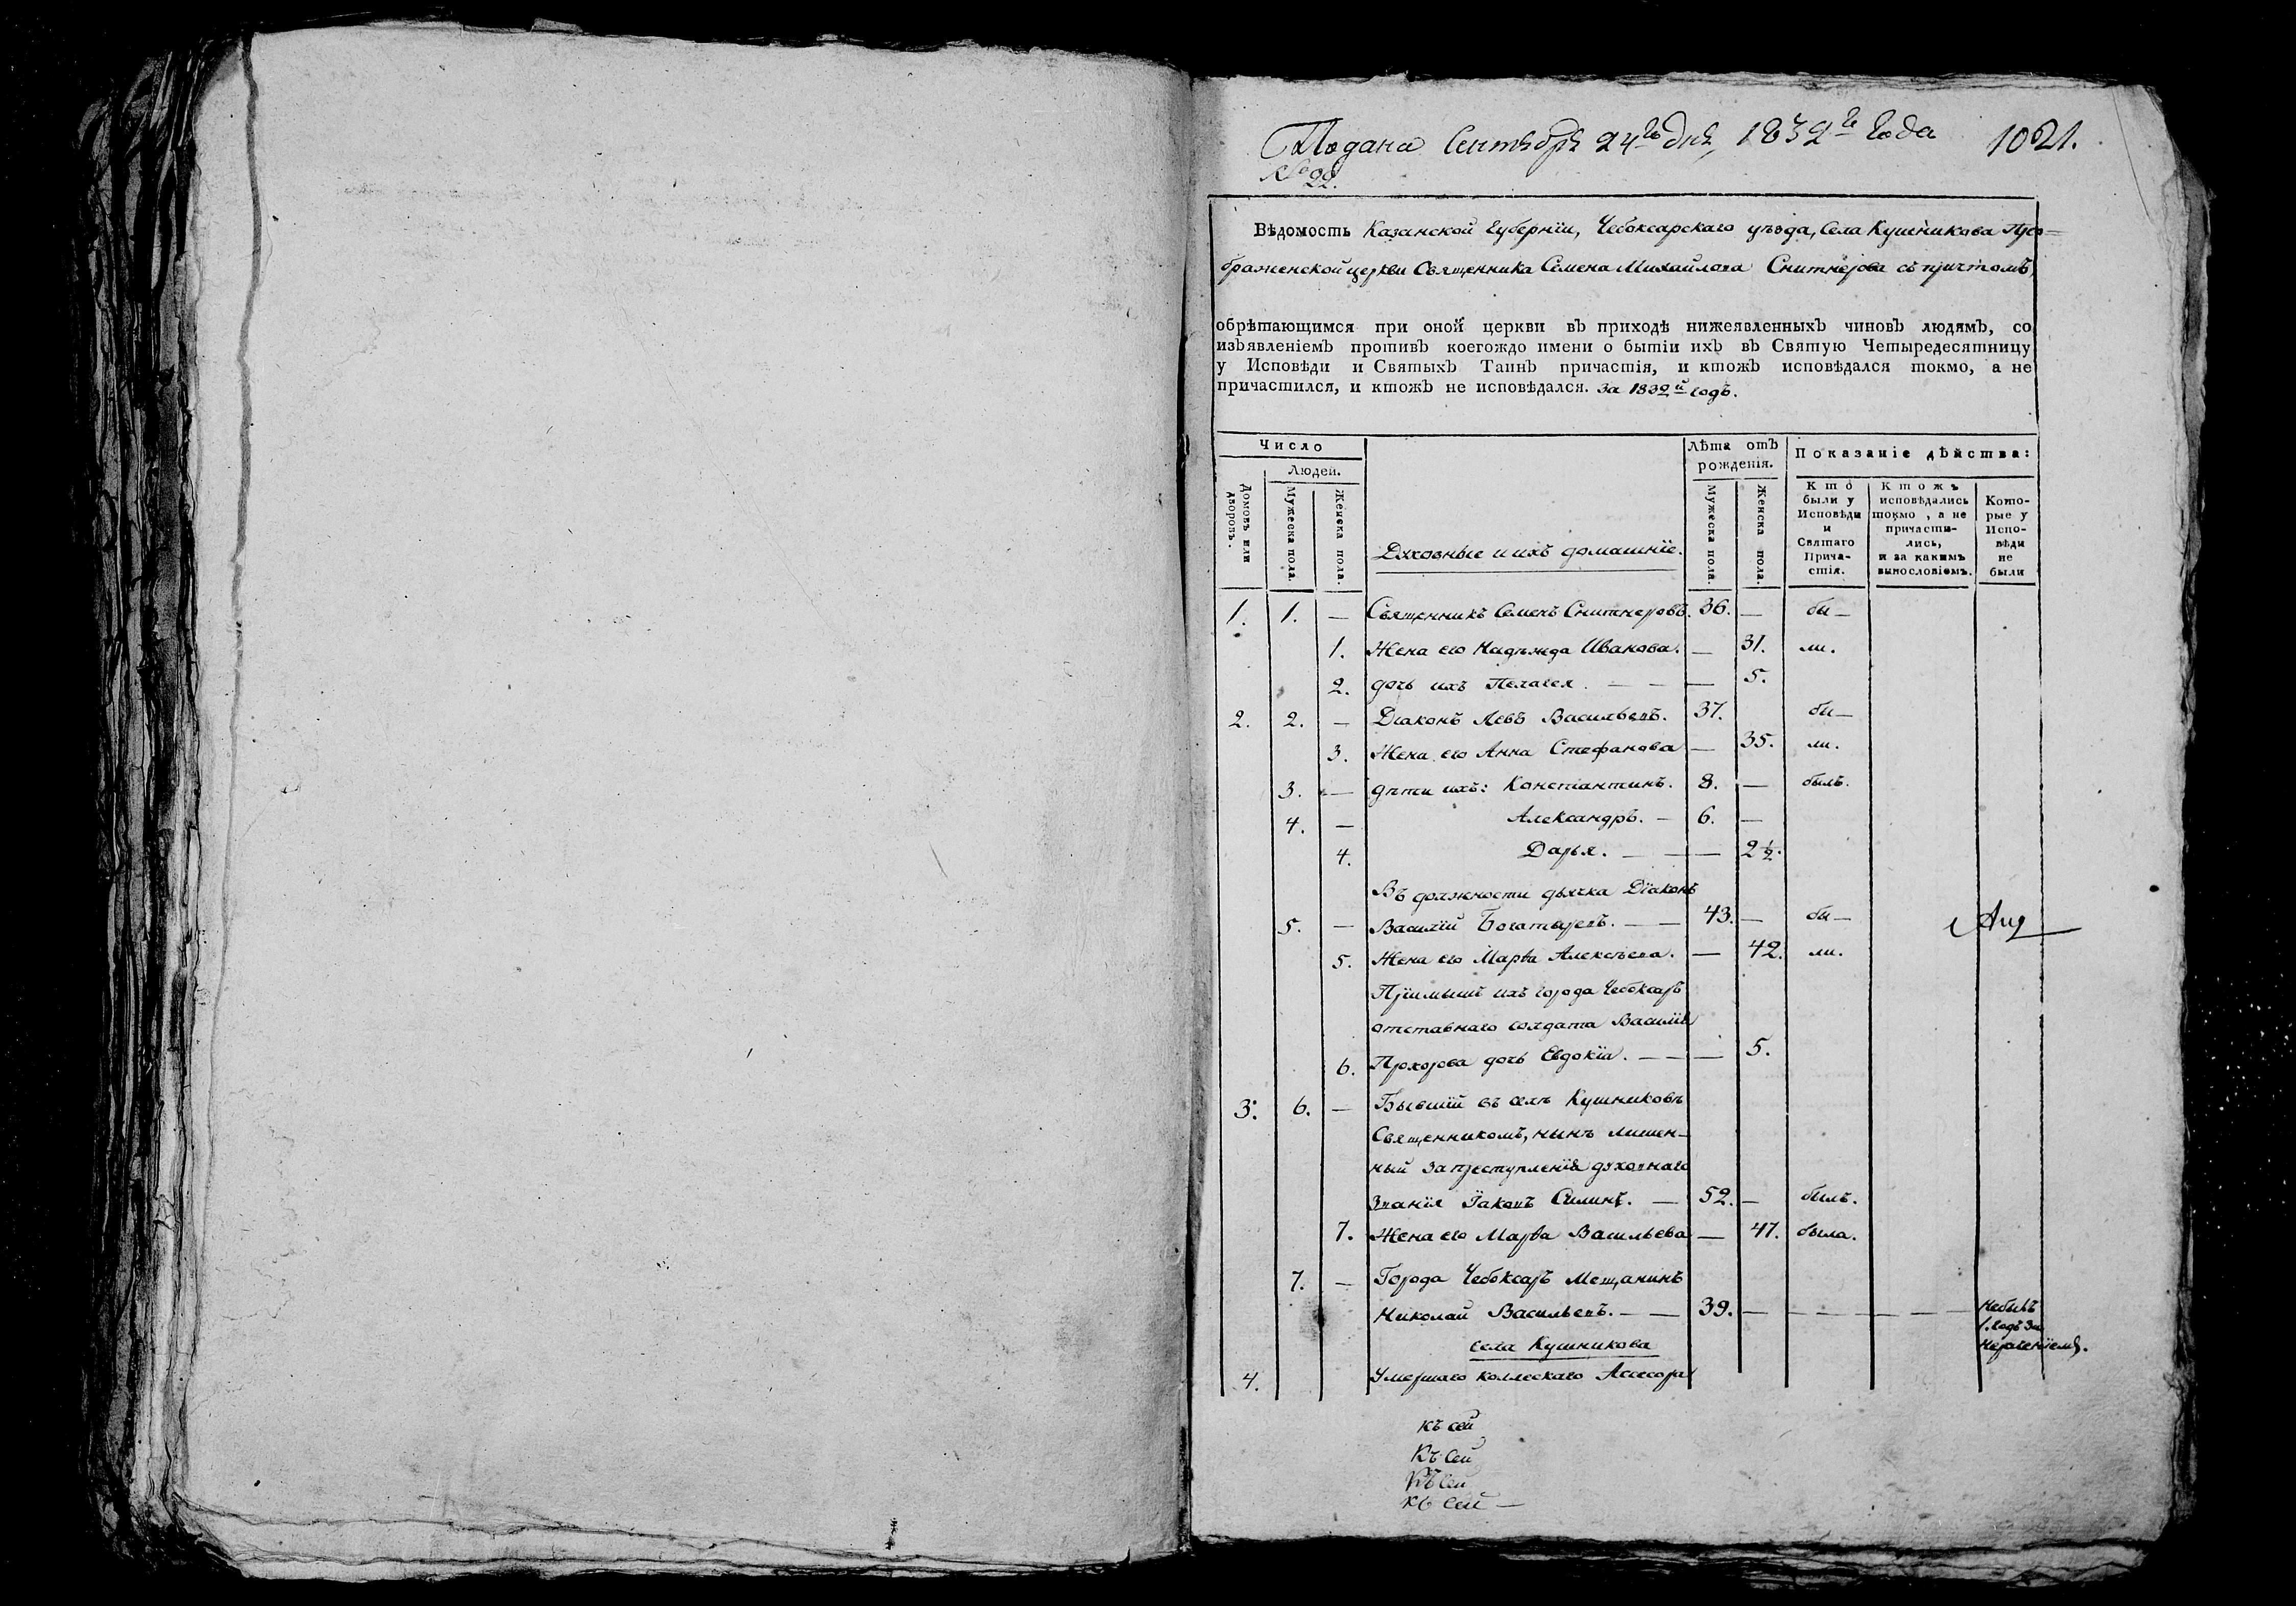 Подана Сентября 24го дня, 1832го Года 1021.
№ 22.
Вѣдомость Казанской Губернїи, Чебоксарскаго уѣзда, Села Кушникова Прео=
браженской церкви Священника Семена Михайлова Снитнерова съ причтомъ,
обрѣтающимся при оной церкви въ приходѣ нижеявленныхъ чиновъ людямъ, со
изъявленіемъ противъ коегождо имени о бытіи ихъ въ Святую Четыредесятницу
у Исповѣди и Святыхъ Таинъ причастія, и ктожъ исповѣдался токмо, а не
причастился, и ктожъ не исповѣдался. За 1832й годъ.
Число
Людей.
Домовъ или дворовъ.
Мужеска пола.
Женска пола.
Духовные и ихъ домашнїе.
Лѣта отъ рожденія.
Мужеска пола.
Женска пола.
Показаніе дѣйства:
Кто были у Исповѣди и Святаго Причастія.
Ктожъ исповѣдались токмо, а не причастились, и за какимъ винословіемъ.
Которые у Исповѣди не были
1. 1. — Священникъ Семенъ Снитнеровъ. 36. — бы—
1. Жена его Надѣжда Иванова. — 31. ли.
2. дочь ихъ Пелагея. — — — 5.
2. 2. — Дїаконъ Левъ Васильевъ. 37. бы—
3. Жена его Анна Стефанова — 35. ли.
3. — дѣти ихъ: Константинъ. 8. — былъ.
4. — Александръ. — 6. —
4. Дарья. — — — 2½.
Въ должности дьячка Дїаконъ
5. — Василїй Богатыревъ. — — 43. — бы—
5. Жена его Марѳа Алексѣева. — 42. ли.
Прїимышъ ихъ города Чебоксаръ
отставнаго солдата Василїя
6. Прохорова дочь Евдокїа. — — — 5.
3. 6. — Бывшїй въ селѣ Кушниковѣ
Священникомъ, нынѣ лишен—
ный за преступленїя духовнаго
Званїя Їаковъ Силинъ. — 52. — былъ.
7. Жена его Марѳа Васильева — 47. была.
7. — Города Чебоксаръ Мещанинъ
Николай Васильевъ. — — 39. — — — — — — небылъ
1. годъ за
нераченїемъ.
села Кушникова
4. Умершаго коллескаго Ассесора
къ сей
Къ Сей
Къ Сей
къ Сей —